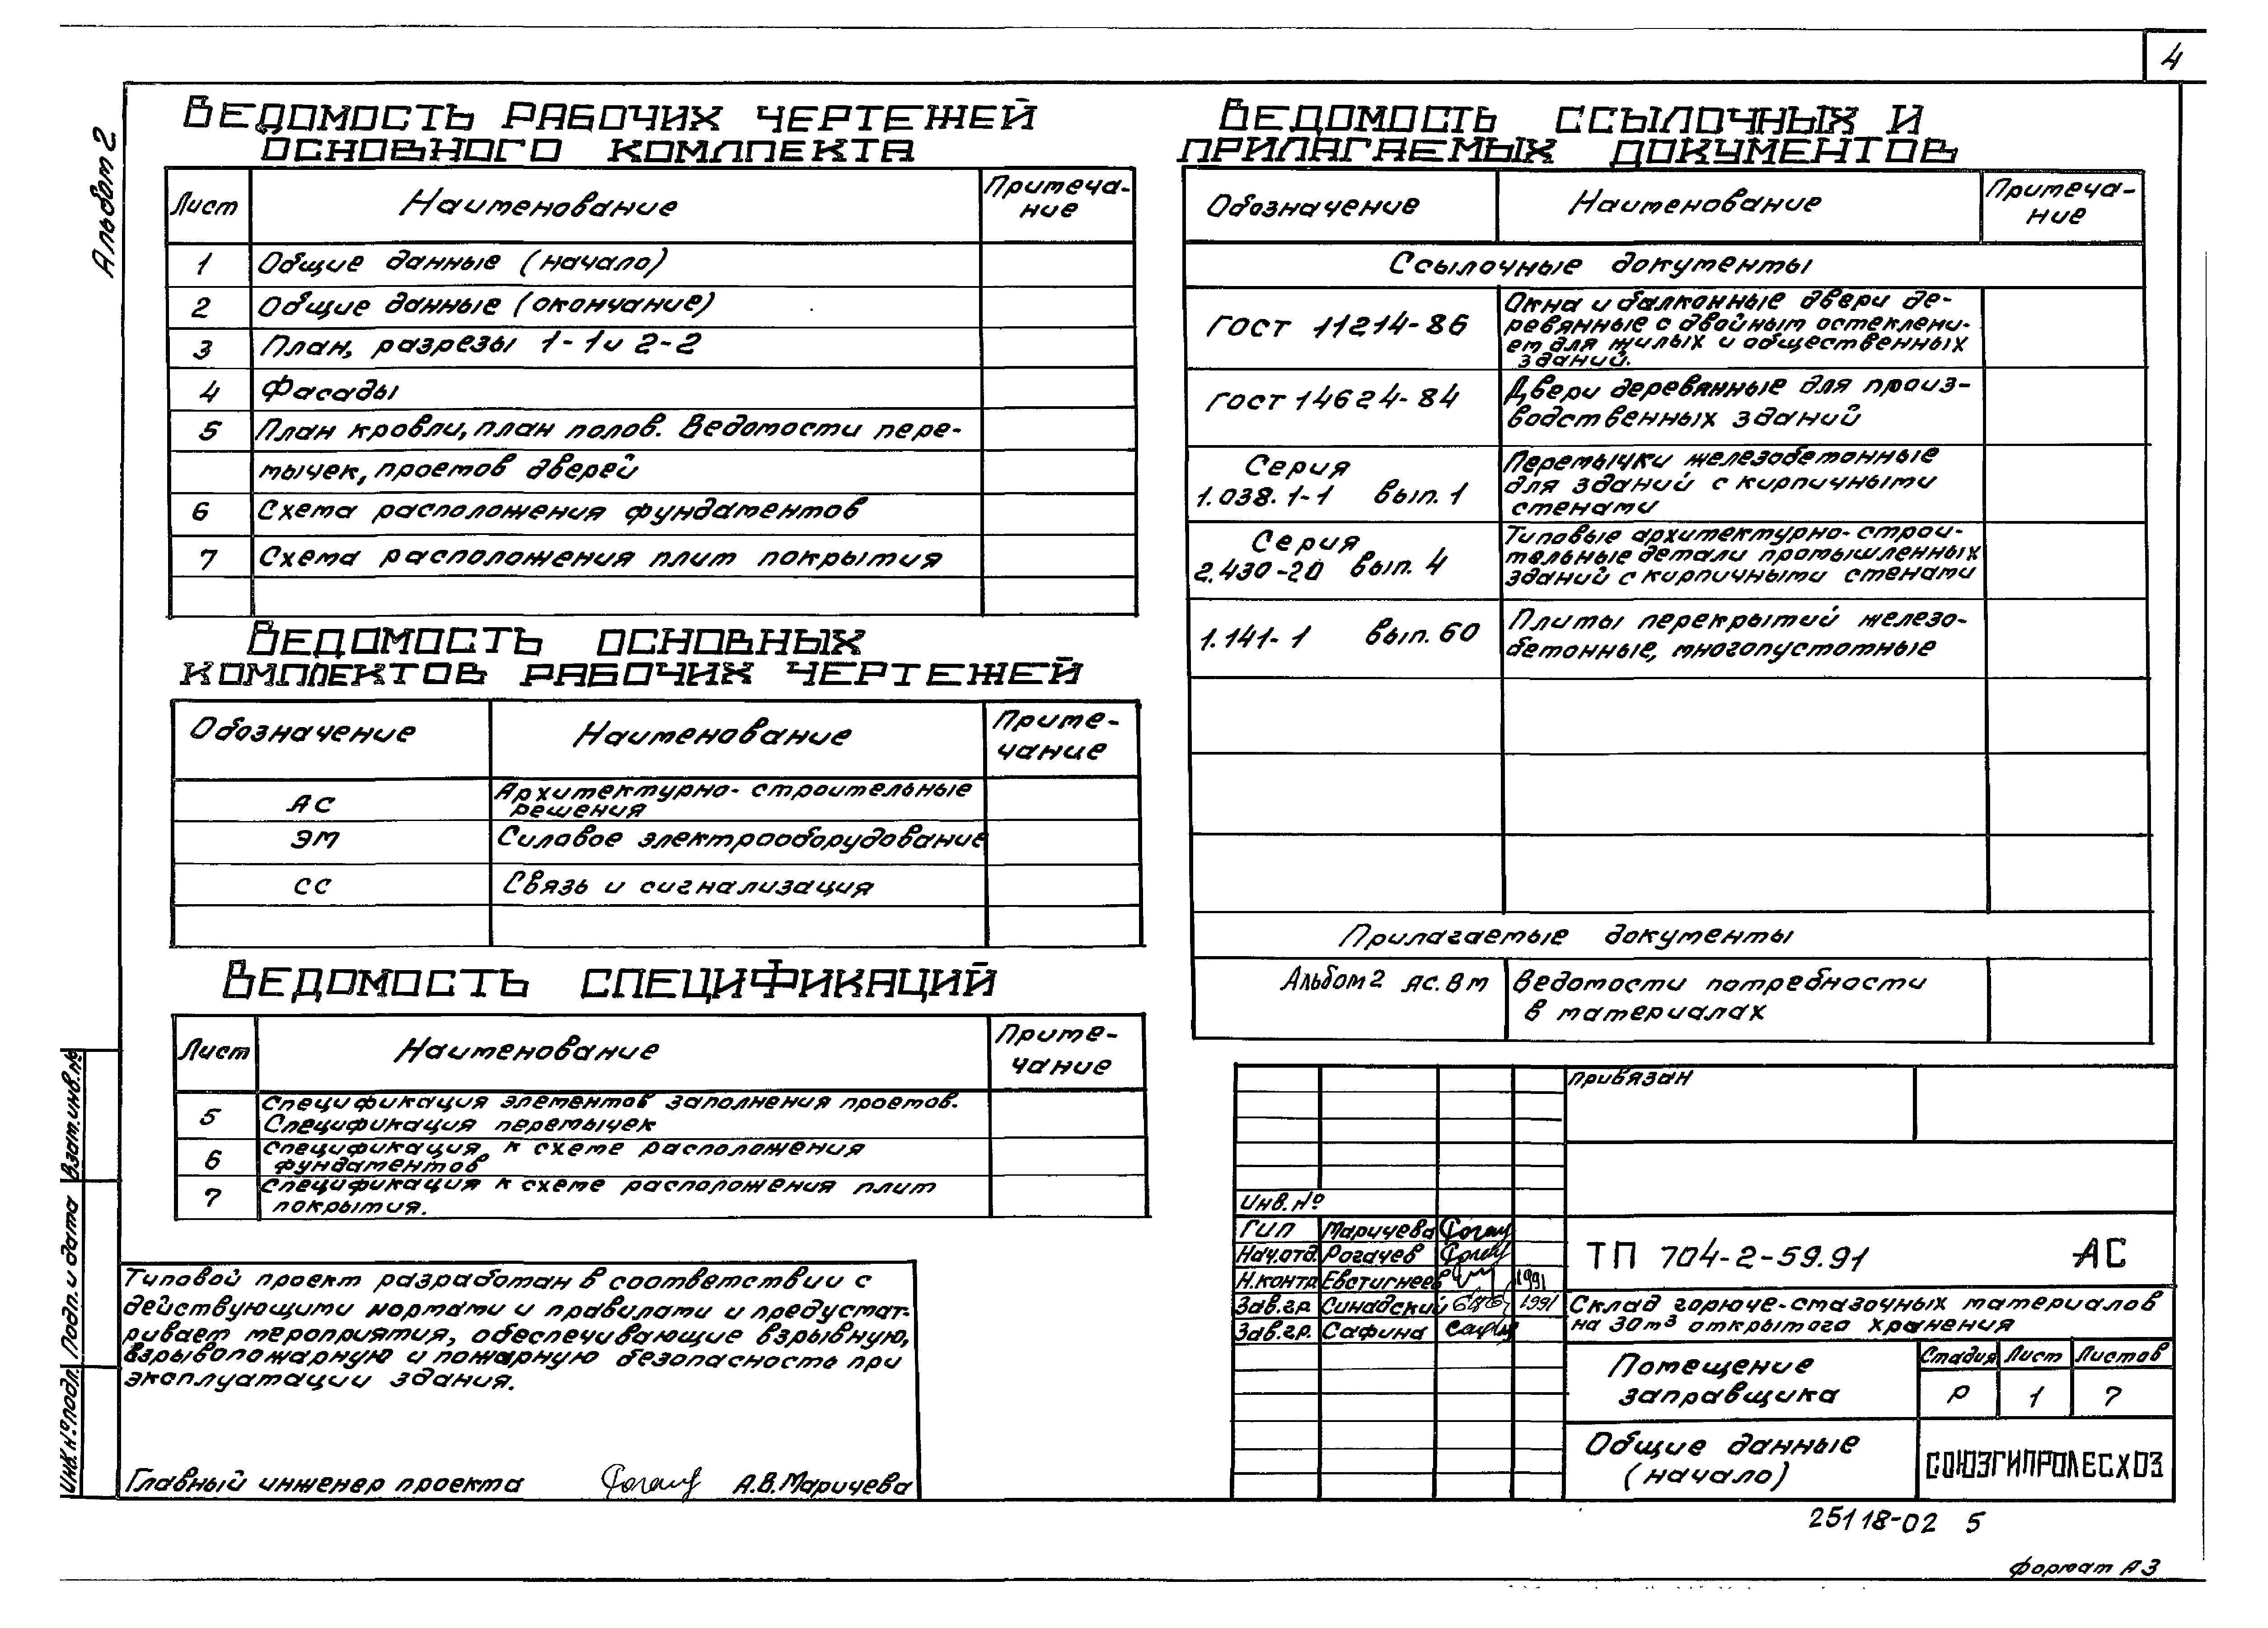 4
Альбом 2
Ведомость рабочих чертежей
основного комплекта
Лист Наименование Примеча-
ние
1 Общие данные (начало)
2 Общие данные (окончание)
3 План, разрезы 1-1 и 2-2
4 Фасады
5 План кровли, план полов. Ведомости пере-
мычек, проемов дверей
6 Схема расположения фундаментов
7 Схема расположения плит покрытия
Ведомость основных
комплектов рабочих чертежей
Обозначение Наименование Приме-
чание
АС Архитектурно-строительные
решения
ЭМ Силовое электрооборудование
СС Связь и сигнализация
Ведомость спецификаций
Лист Наименование Приме-
чание
5 Спецификация элементов заполнения проемов.
Спецификация перемычек
6 Спецификация к схеме расположения
фундаментов
7 Спецификация к схеме расположения плит
покрытия.
Типовой проект разработан в соответствии с
действующими нормами и правилами и предусмат-
ривает мероприятия, обеспечивающие взрывную,
взрывопожарную и пожарную безопасность при
эксплуатации здания.
Главный инженер проекта А.В.Маричева
Ведомость ссылочных и
прилагаемых документов
Обозначение Наименование Примеча-
ние
Ссылочные документы
ГОСТ 11214-86 Окна и балконные двери де-
ревянные с двойным остеклени-
ем для жилых и общественных
зданий.
ГОСТ 14624-84 Двери деревянные для произ-
водственных зданий
Серия
1.038.1-1 вып. 1 Перемычки железобетонные
для зданий с кирпичными
стенами
Серия
2.430-20 вып. 4 Типовые архитектурно-строи-
тельные детали промышленных
зданий с кирпичными стенами
1.141-1 вып. 60 Плиты перекрытий железо-
бетонные, многопустотные
Прилагаемые документы
Альбом 2 АС.ВМ Ведомости потребности
в материалах
Привязан
Инв. №
ГИП Маричева
Нач.отд. Рогачев
Н.контр Евстигнеев 1991
Зав.гр. Синадский 1991
Зав.гр. Сафина
ТП 704-2-59.91 АС
Склад горюче-смазочных материалов
на 30м³ открытого хранения
Помещение
заправщика
Стадия Лист Листов
Р 1 7
Общие данные
(начало)
СОЮЗГИПРОЛЕСХОЗ
Взам.инв.№
Подп. и дата
Инв.№ подл.
25118-02 5
Формат А3